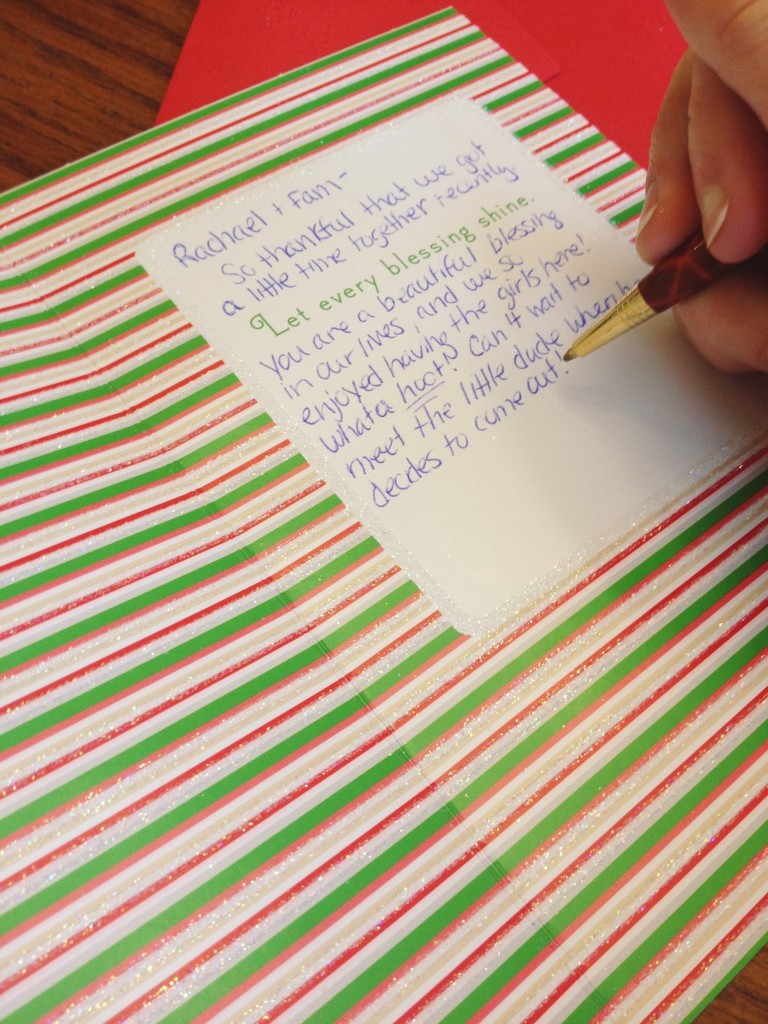 Rachael + Fam-
So thankful that we got
a little time together recently.
Let every blessing shine.
you are a beautiful blessing
in our lives and we so
enjoyed having the girls here!
What a hoot! Can't wait to
meet the little dude when
decides to come out!